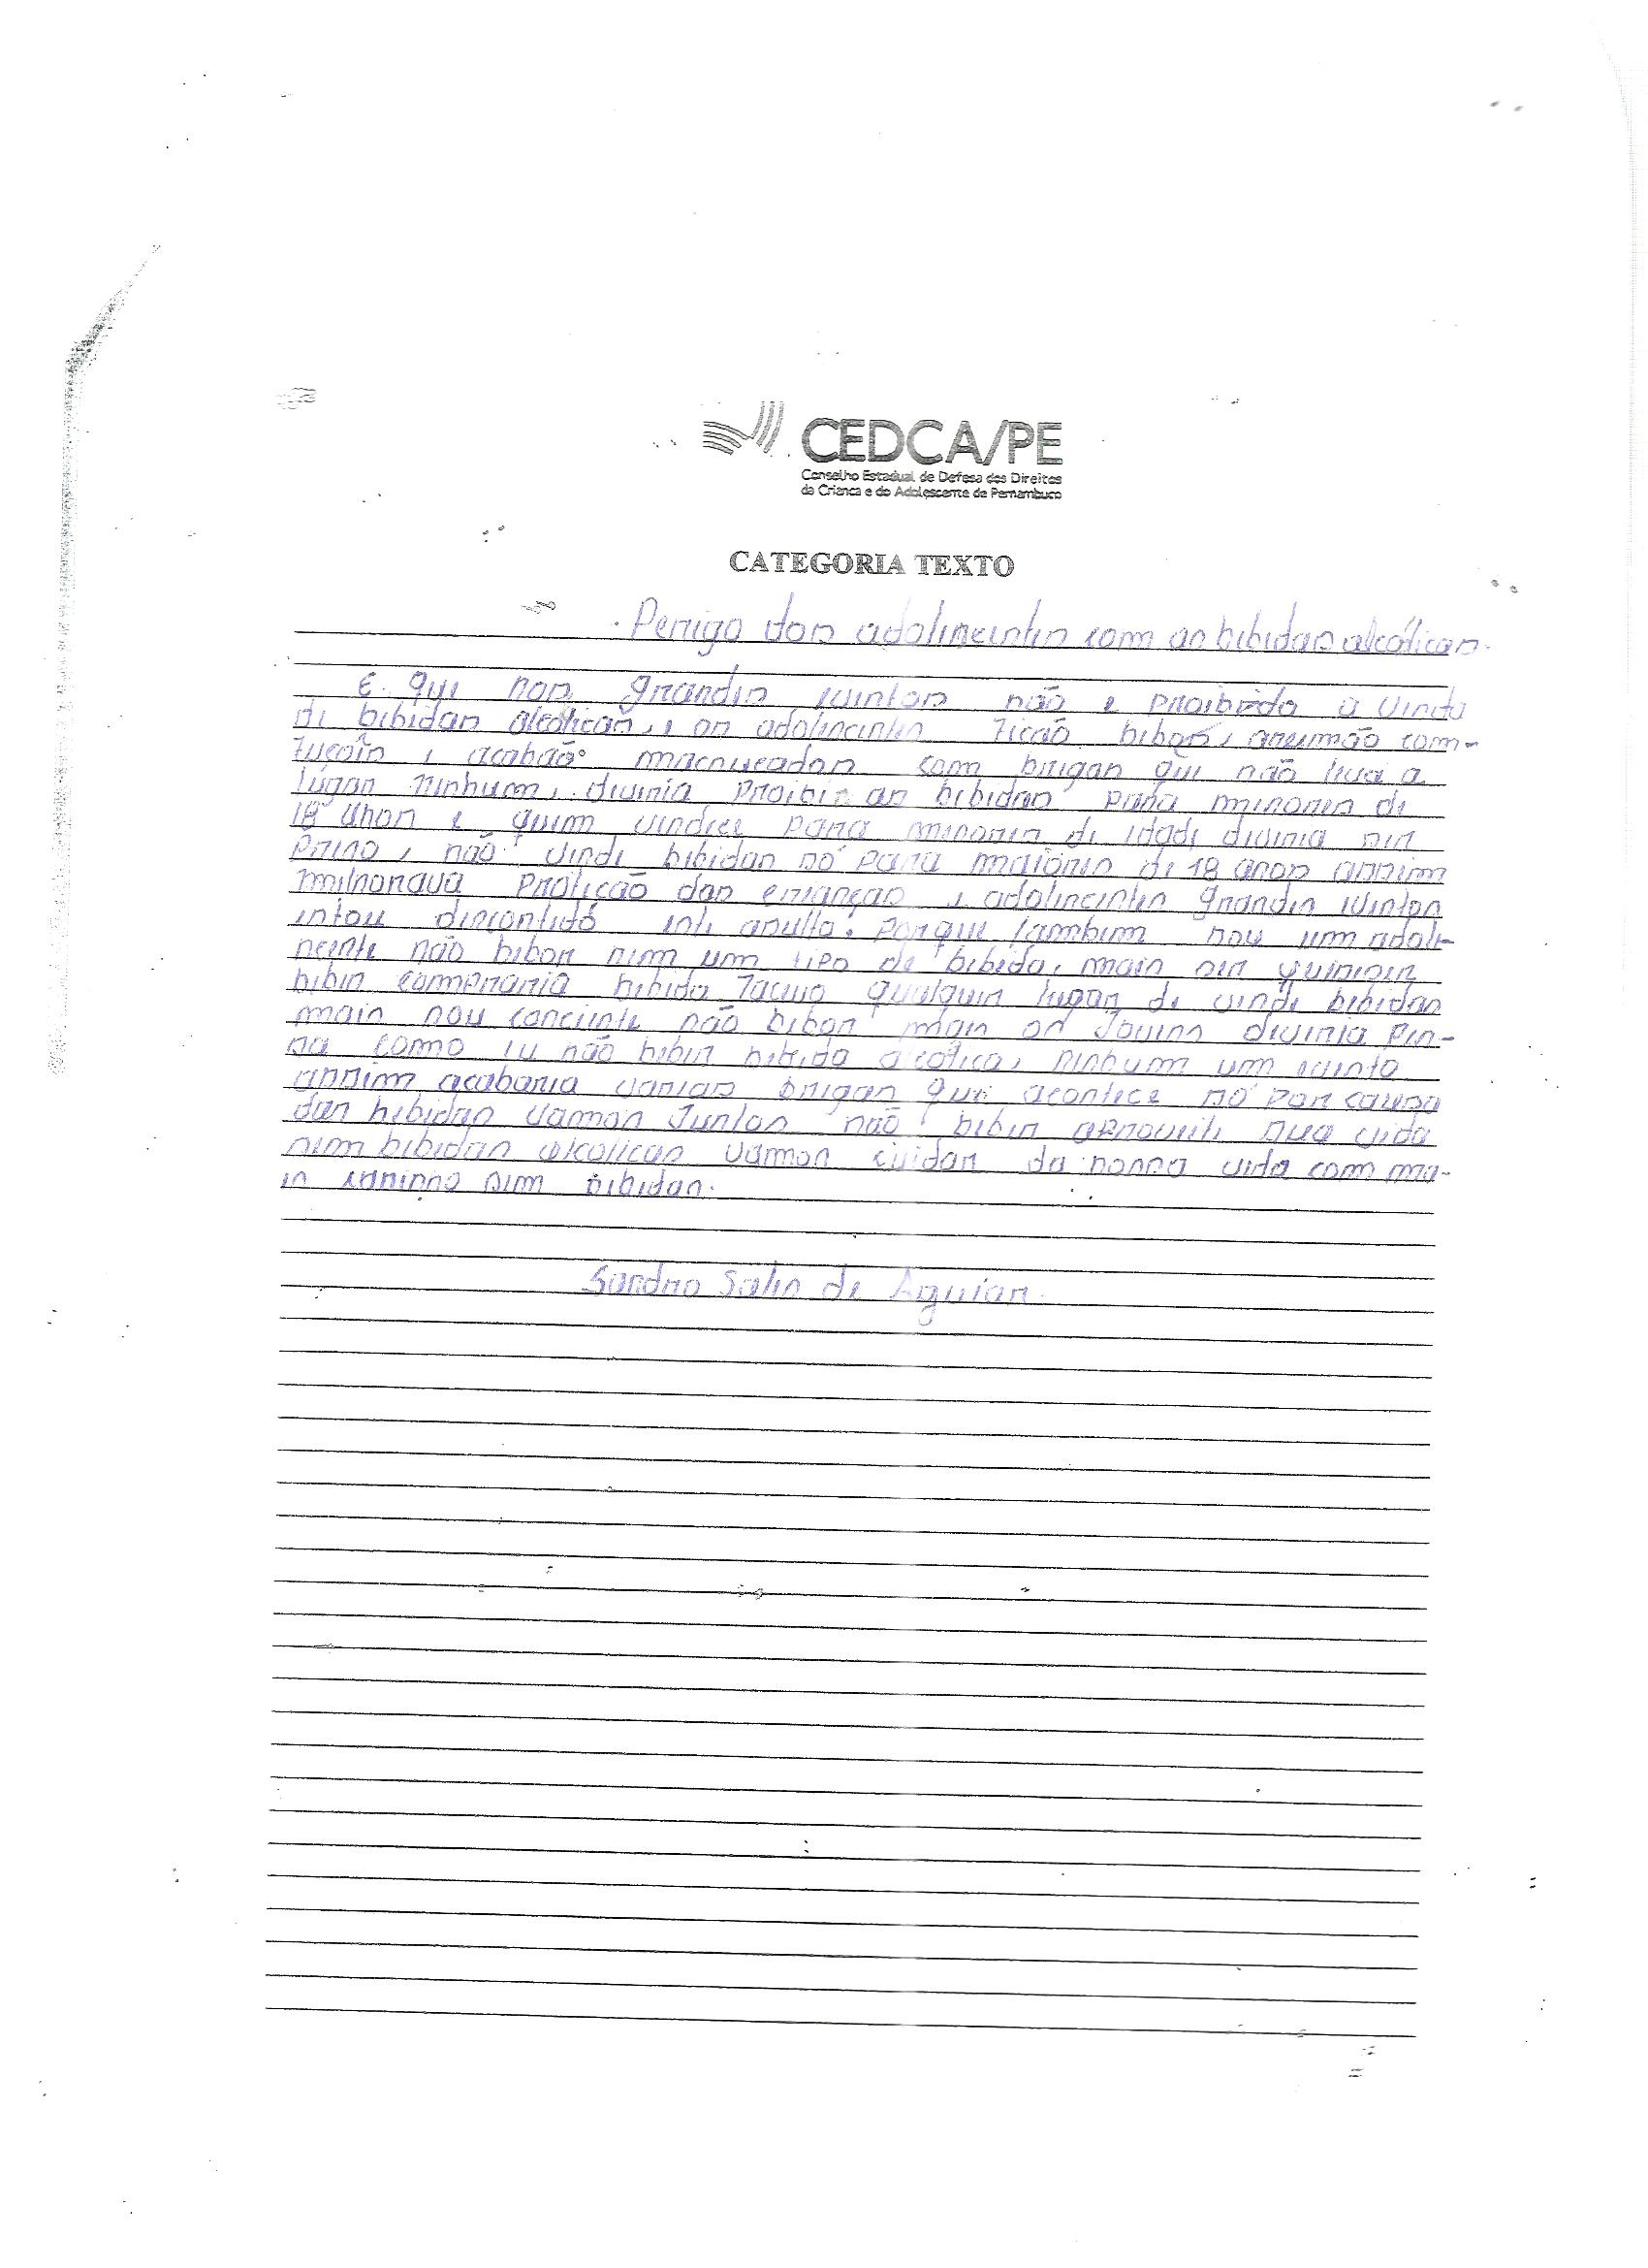 CEDCA/PE
Conselho Estadual de Defesa dos Direitos
da Criança e do Adolescente de Pernambuco
CATEGORIA TEXTO
Perigo dos adolescentes com as bebidas alcólicas.
E que nos grandes eventos não e proibido a venda
de bebidas alcolicas, e os adolescentes ficão bebos, arrumão com-
fuçõis, e acabão machucados com brigas que não leva a
lugar nenhum, deveria proibir as bebidas para menores de
18 anos e quem vender para menores de idade deveria ser
preso, não vende bebidas só para maiores de 18 anos assim
melhorava proteção das crianças e adolescentes grandes eventos
estou este porque tambem sou um adole-
cente não bebor nem um tipo de bebida, mais ser quiser
beber compraria bebida qualquer lugar de vende bebidas
mais sou conciente não bebor mais os Jovens deveria pen-
sa como eu não beber bebida alcolica, nenhum um evento
assim acabaria varias brigas que acontece só por causa
das bebidas vamos Juntos não beber aproveite sua vida
sem bebidas alcolicas vamos cuidar da nossa vida com ma-
is sem bebidas.
Sandro Sales de Aguiar.